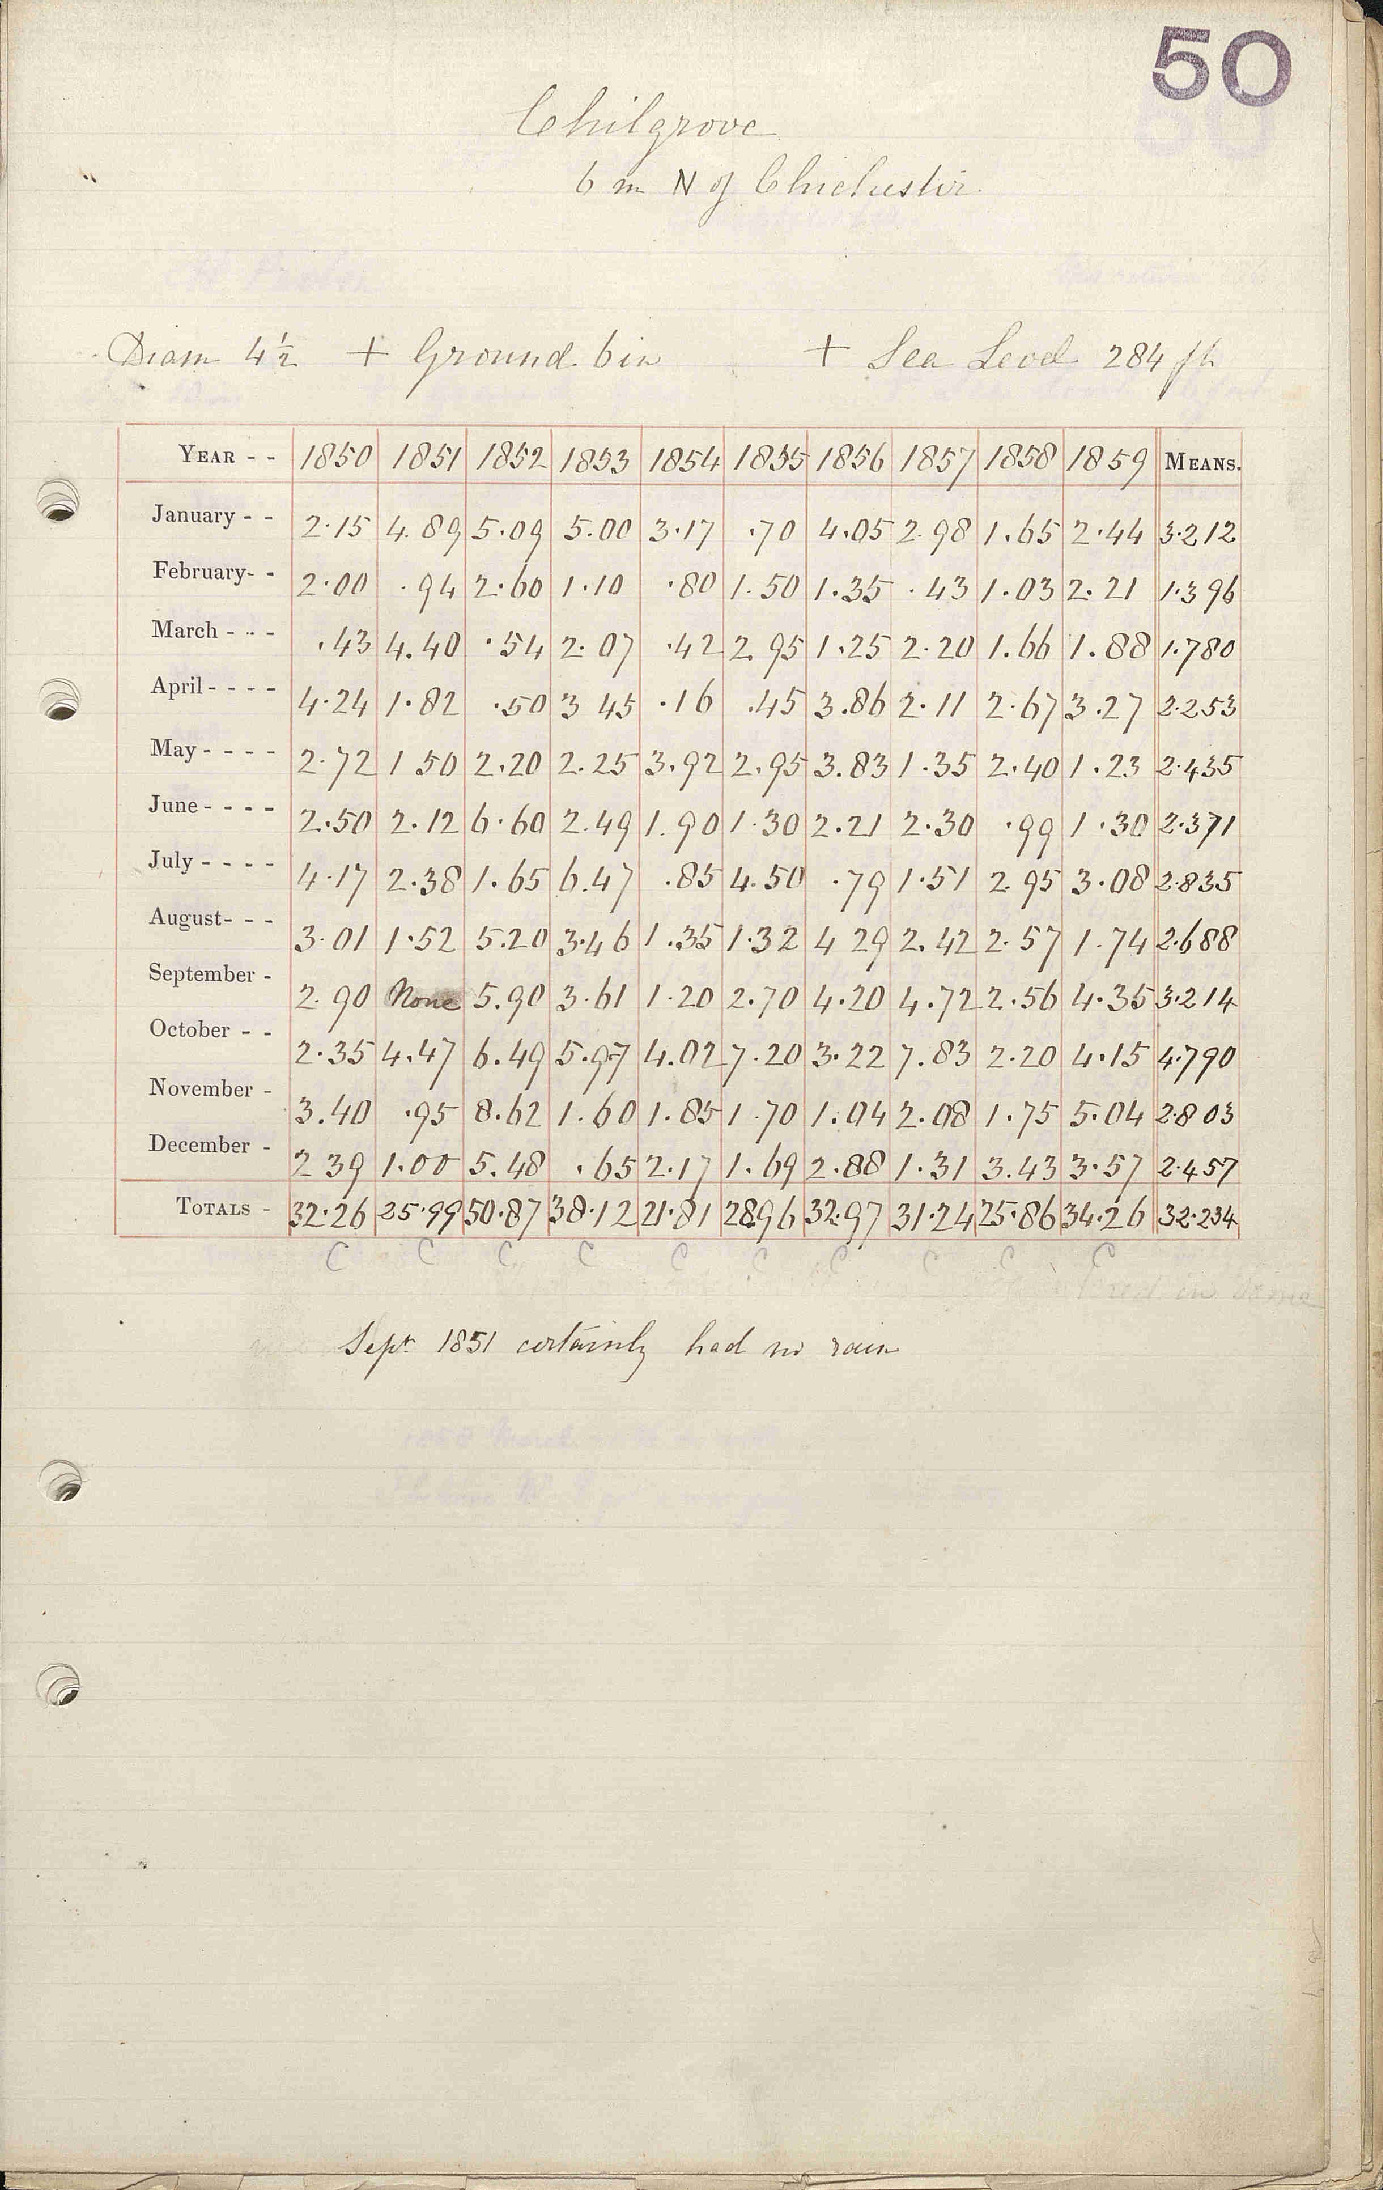 50
Chilgrove
6 m N of Chichester
Diam 4½ + Ground 6 in + Sea Level 284 ft
YEAR - - 1850 1851 1852 1853 1854 1855 1856 1857 1858 1859 MEANS.
January - - 2.15 4.89 5.09 5.00 3.17 .70 4.05 2.98 1.65 2.44 3.212
February- - 2.00 .94 2.60 1.10 .80 1.50 1.35 .43 1.03 2.21 1.396
March - - - .43 4.40 .54 2.07 .42 2.95 1.25 2.20 1.66 1.88 1.780
April - - - - 4.24 1.82 .50 3 45 .16 .45 3.86 2.11 2.67 3.27 2.253
May - - - - 2.72 1 50 2.20 2.25 3.92 2.95 3.83 1.35 2.40 1.23 2.435
June - - - - 2.50 2.12 6.60 2.49 1.90 1.30 2.21 2.30 .99 1.30 2.371
July - - - - 4.17 2.38 1.65 6.47 .85 4.50 .79 1.51 2.95 3.08 2.835
August- - - 3.01 1.52 5.20 3.46 1.35 1.32 4 29 2.42 2.57 1.74 2.688
September - 2.90 None 5.90 3.61 1.20 2.70 4.20 4.72 2.56 4.35 3.214
October - - 2.35 4.47 6.49 5.97 4.02 7.20 3.22 7.83 2.20 4.15 4.790
November - 3.40 .95 8.62 1.60 1.85 1.70 1.04 2.08 1.75 5.04 2.803
December - 2 39 1.00 5.48 .65 2.17 1.69 2.88 1.31 3.43 3.57 2.457
TOTALS - 32.26 25.99 50.87 38.12 21.81 28.96 32.97 31.24 25.86 34.26 32.234
C C C C C C C C C C
Sept 1851 certainly had no rain